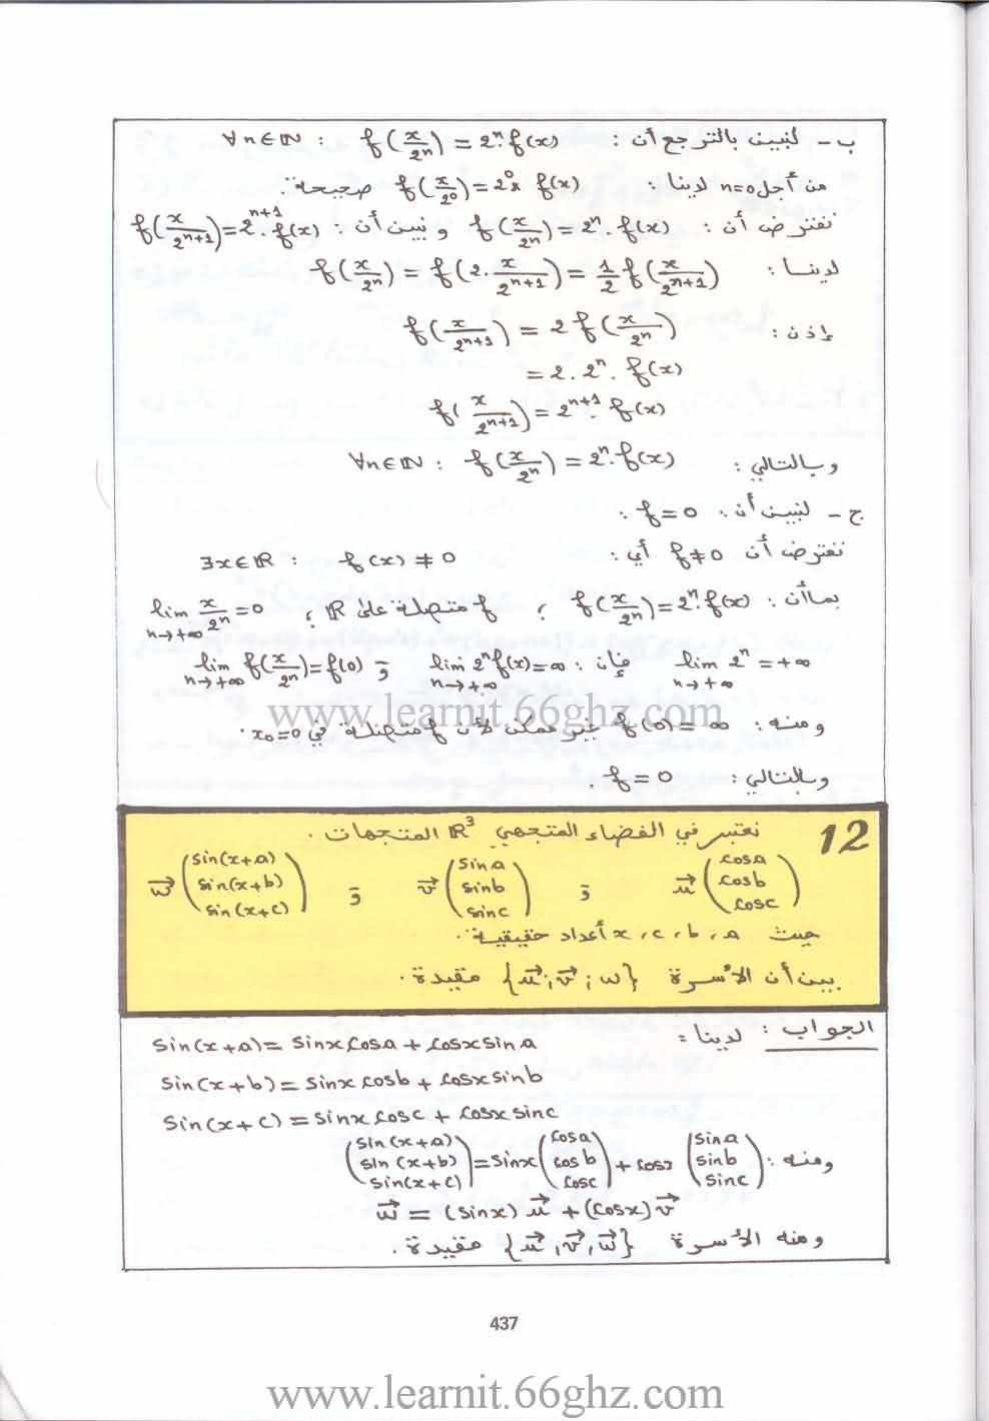 ب - لنبين بالترجع أن : ∀n∈ℕ : f(x/2ⁿ) = 2ⁿ.f(x)
من أجل n=0 لدينا : f(x/2⁰) = 2⁰× f(x) صحيحة.
نفترض أن : f(x/2ⁿ) = 2ⁿ. f(x) و نبين أن : f(x/2ⁿ⁺¹) = 2ⁿ⁺¹. f(x)
لدينا : f(x/2ⁿ) = f(2. x/2ⁿ⁺¹) = 1/2 f(x/2ⁿ⁺¹)
إذن : f(x/2ⁿ⁺¹) = 2 f(x/2ⁿ)
= 2. 2ⁿ. f(x)
f(x/2ⁿ⁺¹) = 2ⁿ⁺¹. f(x)
وبالتالي : ∀n∈ℕ : f(x/2ⁿ) = 2ⁿ. f(x)
ج - لنبين أن : f=0 .
نفترض أن f≠0 أي : ∃x∈ℝ : f(x) ≠ 0
بما أن : f(x/2ⁿ) = 2ⁿ. f(x) ; f متصلة على ℝ ; lim n→+∞ x/2ⁿ = 0
lim n→+∞ 2ⁿ = +∞ فإن : lim n→+∞ 2ⁿ f(x) = ∞ و lim n→+∞ f(x/2ⁿ) = f(0)
www.learnit.66ghz.com
ومنه : f(0) = ∞ غير ممكن لأن f متصلة في x₀=0 .
وبالتالي : f=0 .
12 نعتبر في الفضاء المتجهي ℝ³ المتجهات .
u⃗ (cosa cosb cosc) و v⃗ (sina sinb sinc) و w⃗ (sin(x+a) sin(x+b) sin(x+c))
حيث x ، c ، b ، a أعداد حقيقية .
بين أن الأسرة {u⃗ ; v⃗ ; w} مقيدة .
الجواب : لدينا : sin(x+a) = sinx cosa + cosx sina
sin(x+b) = sinx cosb + cosx sinb
sin(x+c) = sinx cosc + cosx sinc
ومنه : (sin(x+a) sin(x+b) sin(x+c)) = sinx (cosa cosb cosc) + cosx (sina sinb sinc)
w⃗ = (sinx) u⃗ + (cosx) v⃗
ومنه الأسرة {u⃗, v⃗, w⃗} مقيدة .
437
www.learnit.66ghz.com